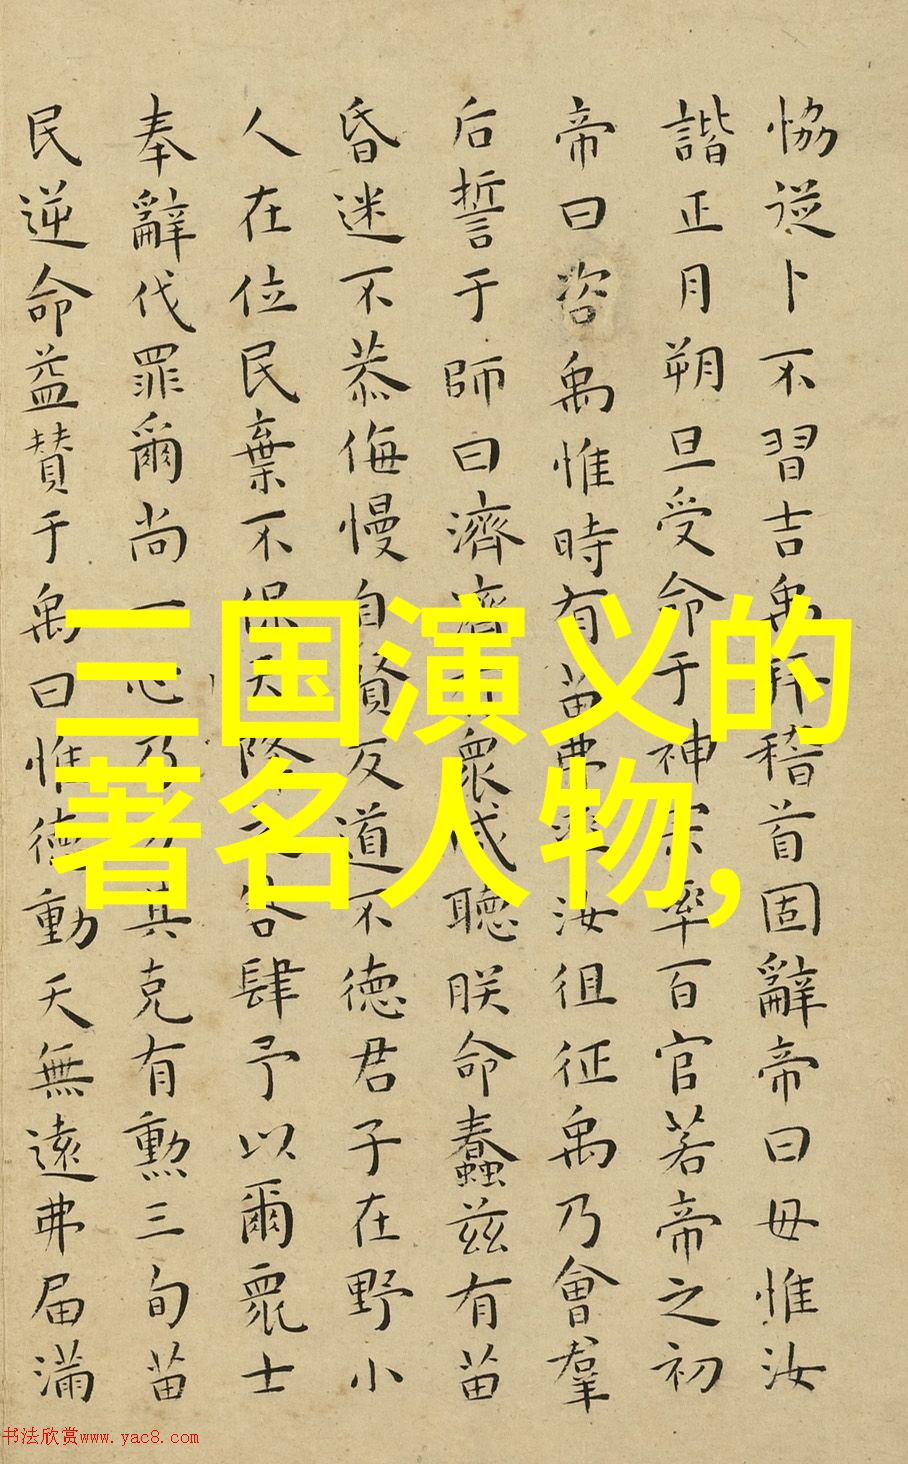 恊從卜不習吉禹拜稽首固辭帝曰毋惟汝
諧正月朔旦受命于神宗率百官若帝之初
帝曰咨禹惟時有苗弗率汝徂征禹乃會羣
后誓于師曰濟濟有衆咸聽朕命蠢兹有苗
昏迷不恭侮慢自賢反道不徳君子在野小
人在位民棄不保天降之咎肆予以爾衆士
奉辭伐罪爾尚一心乃力其克有勲三旬苗
民逆命益賛于禹曰惟徳動天無遠弗届滿
三国演义的
著名人物,
书法欣赏www.yac8.com